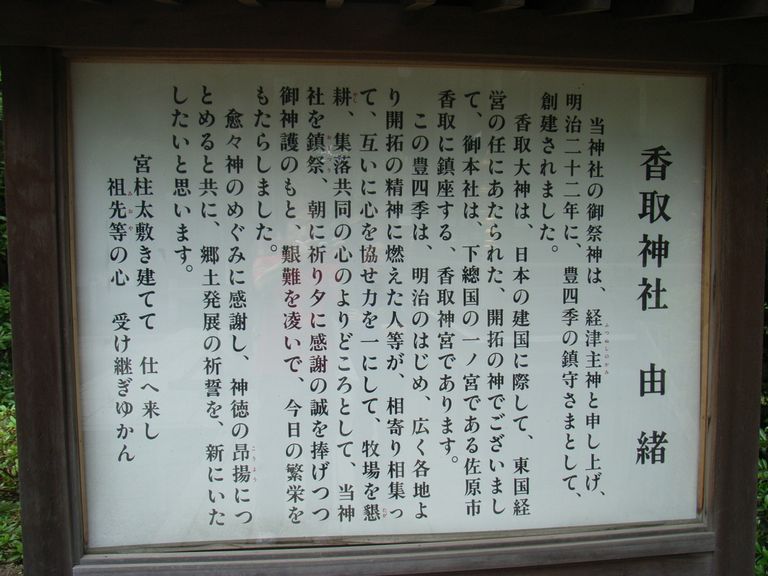 香取神社　由緒
当神社の御祭神は、経津主神と申し上げ、
明治二十二年に、豊四季の鎮守さまとして、
創建されました。
香取大神は、日本の建国に際して、東国経
営の任にあたられた、開拓の神でございまし
て、御本社は、下總国の一ノ宮である佐原市
香取に鎮座する、香取神宮であります。
この豊四季は、明治のはじめ、広く各地よ
り開拓の精神に燃えた人等が、相寄り相集っ
て、互いに心を協せ力を一にして、牧場を懇
耕、集落共同の心のよりどころとして、当神
社を鎮祭、朝に祈り夕に感謝の誠を捧げつつ
御神護のもと、艱難を凌いで、今日の繁栄を
もたらしました。
愈々神のめぐみに感謝し、神徳の昂揚につ
とめると共に、郷土発展の祈誓を、新にいた
したいと思います。
宮柱太敷き建てて　仕へ来し
祖先等の心　受け継ぎゆかん